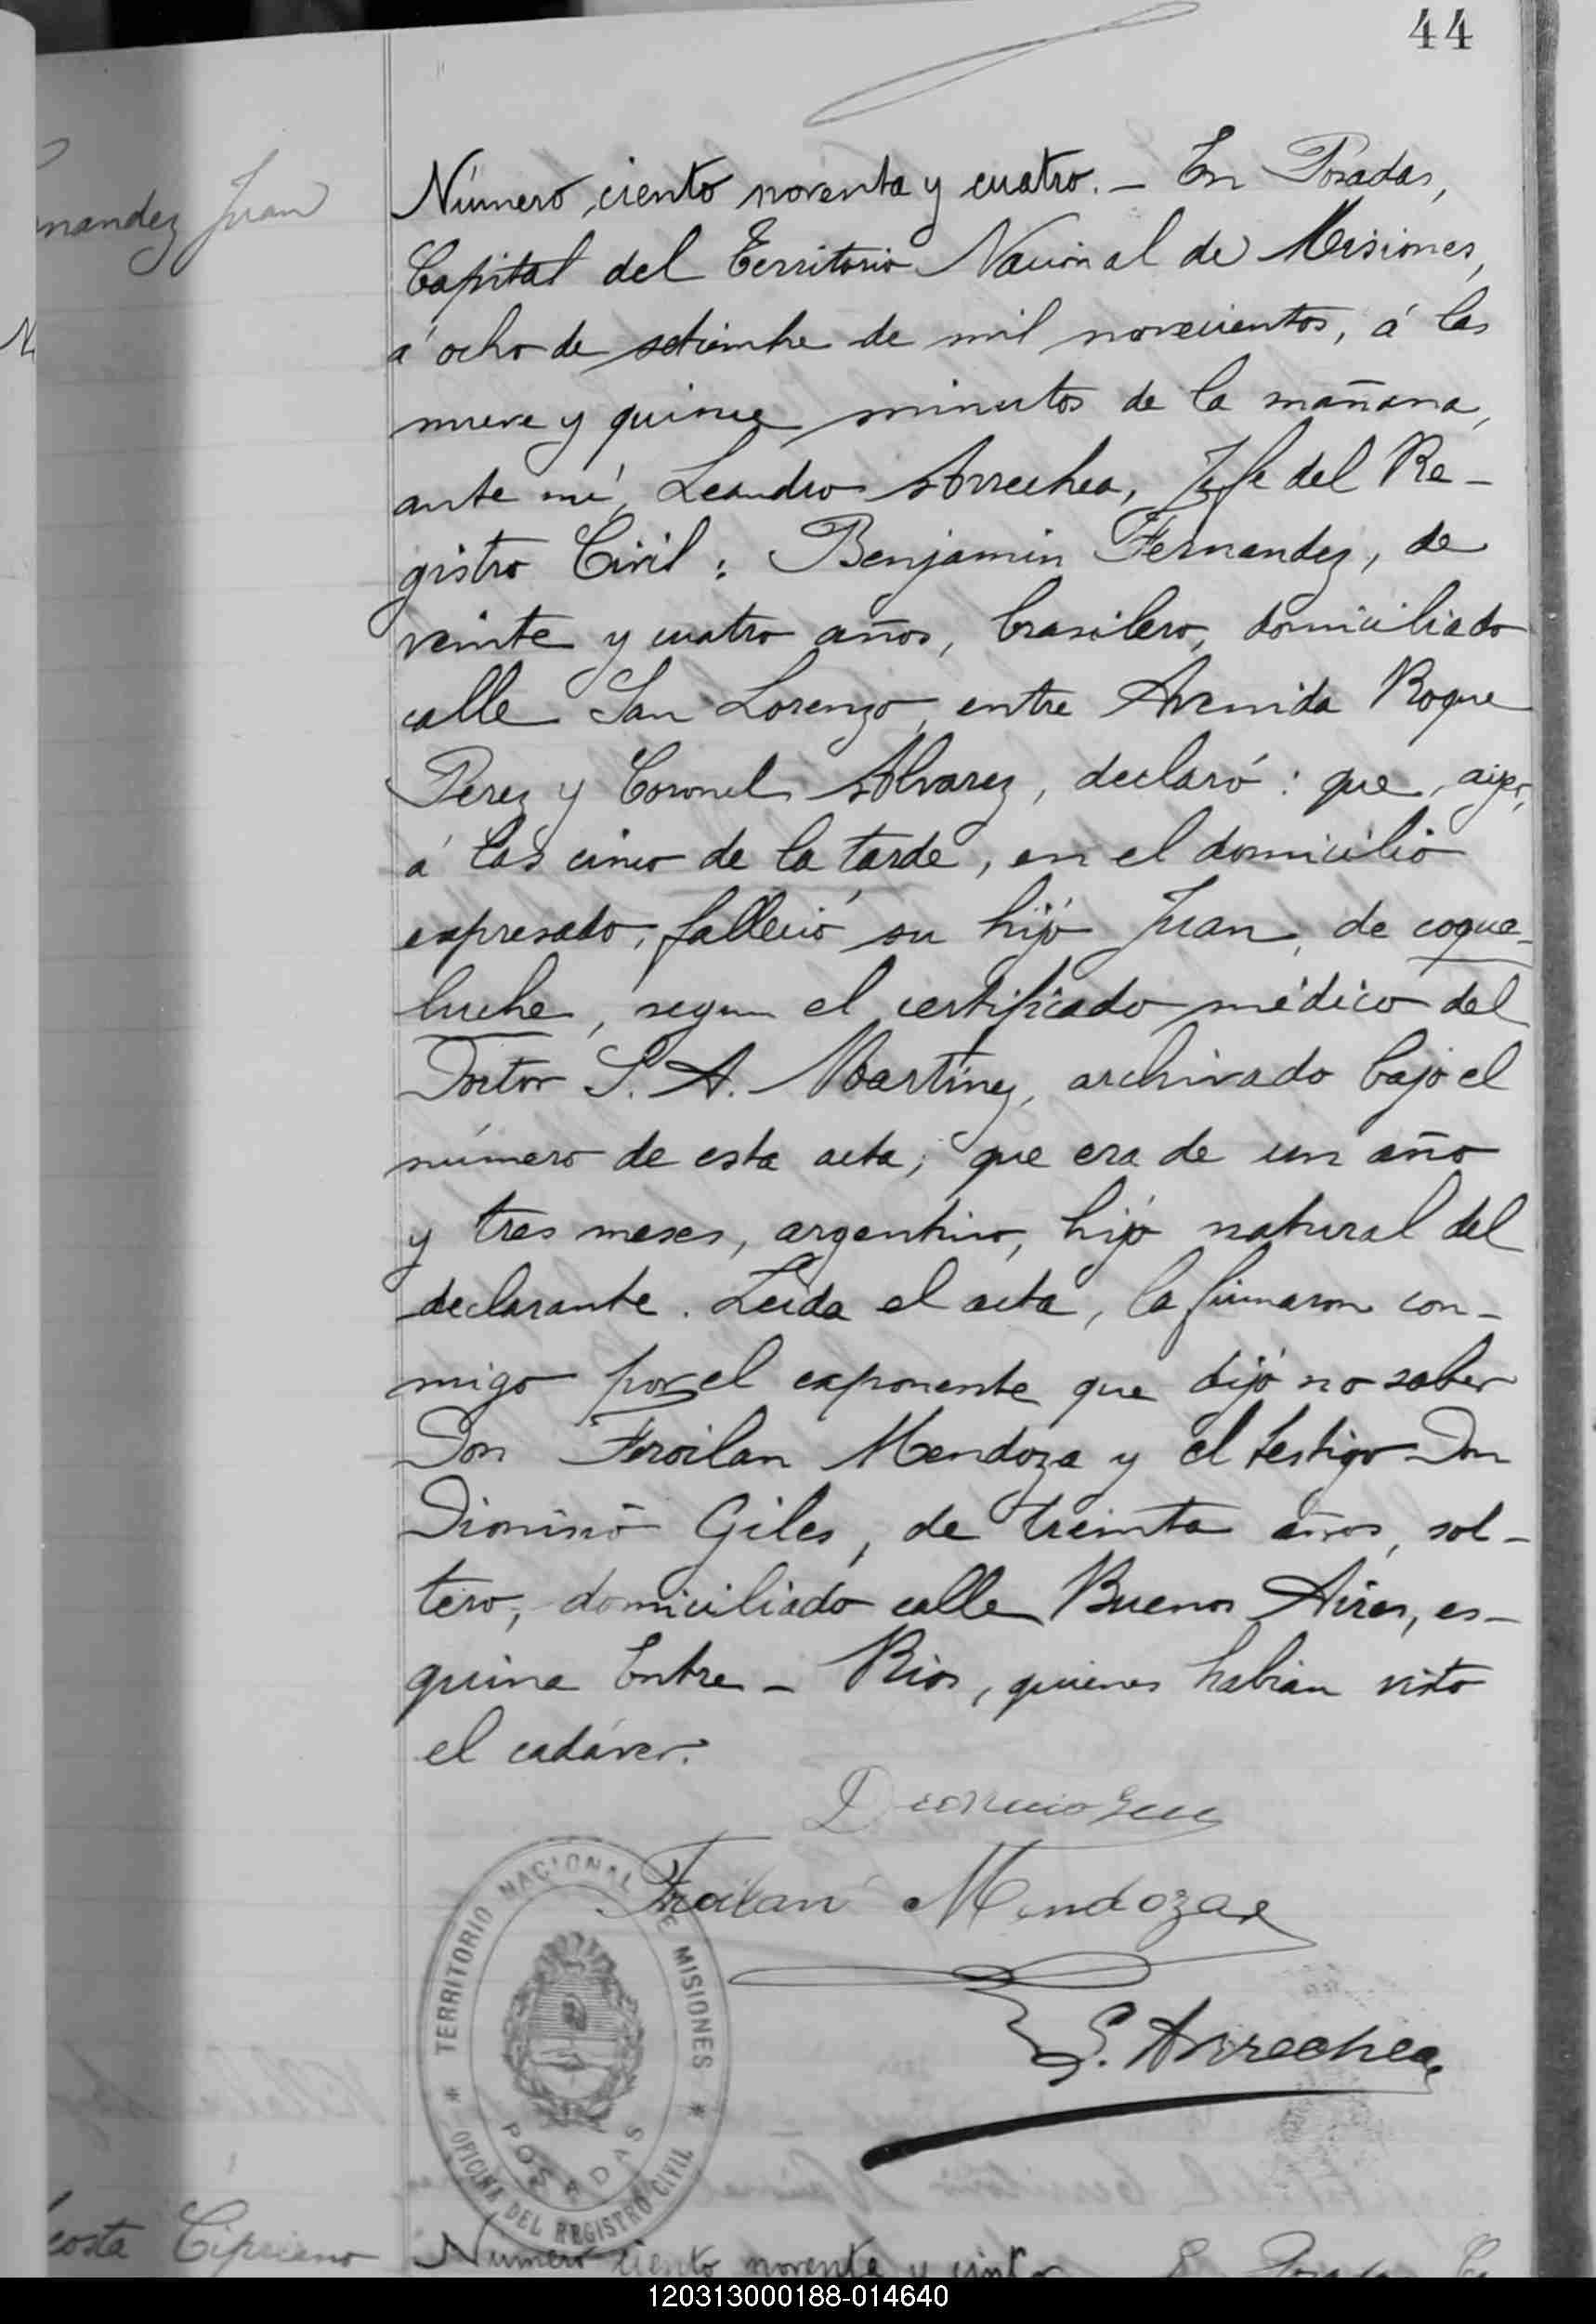 44
nandez Juan
Número ciento noventa y cuatro. – En Posadas,
Capital del Territorio Nacional de Misiones,
á ocho de setiembre de mil novecientos, á las
nueve y quince minutos de la mañana,
ante mí, Leandro Arrechea, Jefe del Re-
gistro Civil: Benjamin Fernandez, de
veinte y cuatro años, brasilero, domiciliado
calle San Lorenzo, entre Avenida Roque
Perez y Coronel Alvarez, declaró: que, ayer,
á las cinco de la tarde, en el domicilio
expresado, falleció su hijo Juan, de coque-
luche, segun el certificado médico del
Doctor S. A. Martinez, archivado bajo el
número de esta acta; que era de un año
y tres meses, argentino, hijo natural del
declarante. Leida el acta, la firmaron con-
migo por el exponente que dijo no saber
Don Froilan Mendoza y el testigo Don
Dionisio Giles, de treinta años, sol-
tero, domiciliado calle Buenos Aires, es-
quina Entre – Rios, quienes habian visto
el cadáver.
Froilan Mendoza
L. Arrechea
TERRITORIO NACIONAL DE MISIONES
POSADAS
* OFICINA DEL REGISTRO CIVIL *
costa Cipriano
Numero ciento noventa y cinco
120313000188-014640